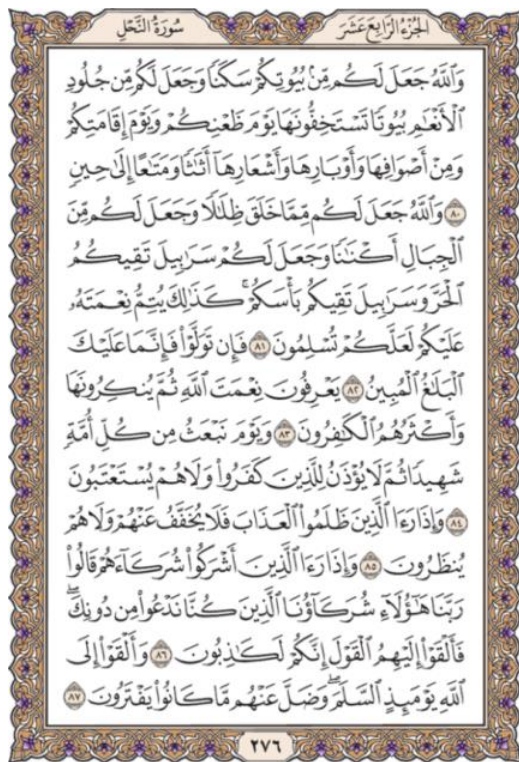 الجُزْءُ الرَّابِعَ عَشَرَ سُورَةُ النَّحْلِ
وَٱللَّهُ جَعَلَ لَكُم مِّنۢ بُيُوتِكُمْ سَكَنًا وَجَعَلَ لَكُم مِّن جُلُودِ
ٱلْأَنْعَٰمِ بُيُوتًا تَسْتَخِفُّونَهَا يَوْمَ ظَعْنِكُمْ وَيَوْمَ إِقَامَتِكُمْ
وَمِنْ أَصْوَافِهَا وَأَوْبَارِهَا وَأَشْعَارِهَآ أَثَٰثًا وَمَتَٰعًا إِلَىٰ حِينٍ
٨٠ وَٱللَّهُ جَعَلَ لَكُم مِّمَّا خَلَقَ ظِلَٰلًا وَجَعَلَ لَكُم مِّنَ
ٱلْجِبَالِ أَكْنَٰنًا وَجَعَلَ لَكُمْ سَرَٰبِيلَ تَقِيكُمُ
ٱلْحَرَّ وَسَرَٰبِيلَ تَقِيكُم بَأْسَكُمْۚ كَذَٰلِكَ يُتِمُّ نِعْمَتَهُۥ
عَلَيْكُمْ لَعَلَّكُمْ تُسْلِمُونَ ٨١ فَإِن تَوَلَّوْا۟ فَإِنَّمَا عَلَيْكَ
ٱلْبَلَٰغُ ٱلْمُبِينُ ٨٢ يَعْرِفُونَ نِعْمَتَ ٱللَّهِ ثُمَّ يُنكِرُونَهَا
وَأَكْثَرُهُمُ ٱلْكَٰفِرُونَ ٨٣ وَيَوْمَ نَبْعَثُ مِن كُلِّ أُمَّةٍ
شَهِيدًا ثُمَّ لَا يُؤْذَنُ لِلَّذِينَ كَفَرُوا۟ وَلَا هُمْ يُسْتَعْتَبُونَ
٨٤ وَإِذَا رَءَا ٱلَّذِينَ ظَلَمُوا۟ ٱلْعَذَابَ فَلَا يُخَفَّفُ عَنْهُمْ وَلَا هُمْ
يُنظَرُونَ ٨٥ وَإِذَا رَءَا ٱلَّذِينَ أَشْرَكُوا۟ شُرَكَآءَهُمْ قَالُوا۟
رَبَّنَا هَٰٓؤُلَآءِ شُرَكَآؤُنَا ٱلَّذِينَ كُنَّا نَدْعُوا۟ مِن دُونِكَۖ
فَأَلْقَوْا۟ إِلَيْهِمُ ٱلْقَوْلَ إِنَّكُمْ لَكَٰذِبُونَ ٨٦ وَأَلْقَوْا۟ إِلَى
ٱللَّهِ يَوْمَئِذٍ ٱلسَّلَمَۖ وَضَلَّ عَنْهُم مَّا كَانُوا۟ يَفْتَرُونَ ٨٧
٢٧٦